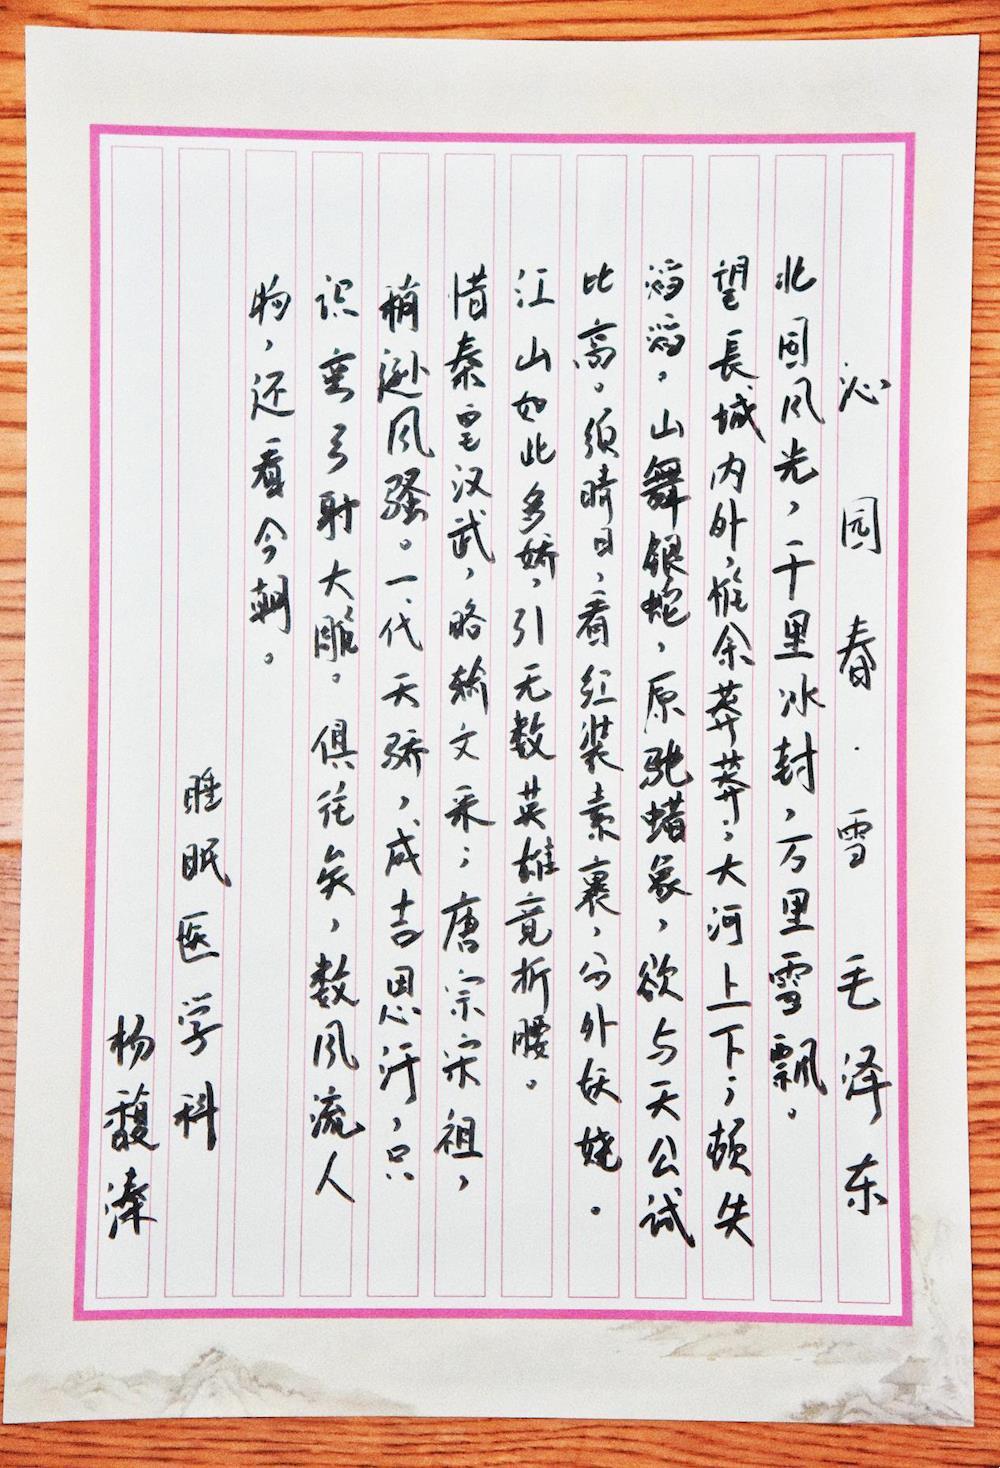 沁园春·雪 毛泽东
北国风光，千里冰封，万里雪飘。
望長城内外，惟余莽莽；大河上下，顿失
滔滔。山舞银蛇，原驰蜡象，欲与天公试
比高。须晴日，看红装素裹，分外妖娆。
江山如此多娇，引无数英雄竟折腰。
惜秦皇汉武，略输文采；唐宗宋祖，
稍逊风骚。一代天骄，成吉思汗，只
识弯弓射大雕。俱往矣，数风流人
物，还看今朝。
睡眠医学科
杨馥溱